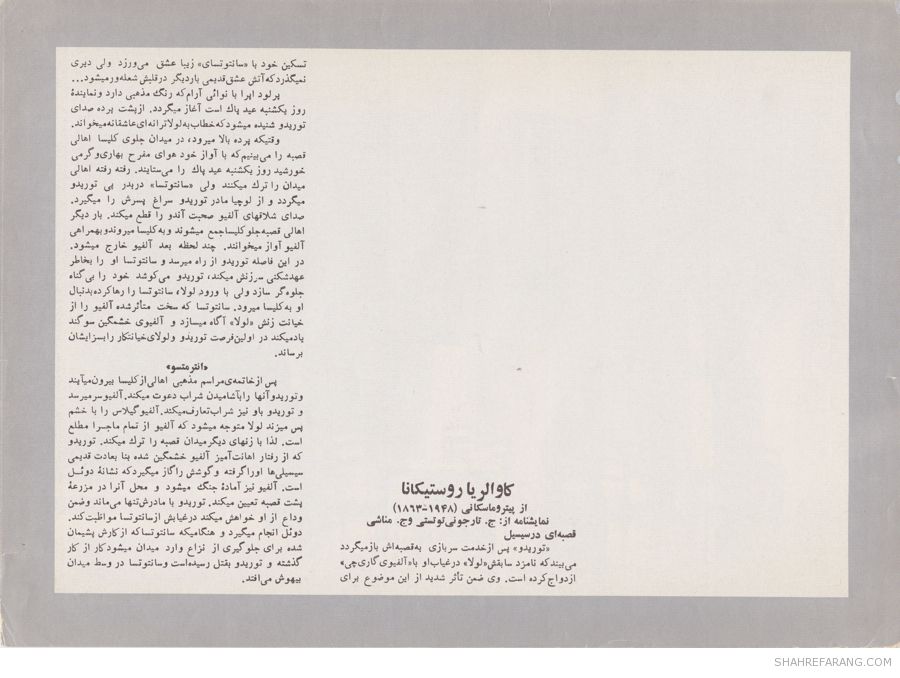 کاوالریا روستیکانا
از پیتروماسکانی (۱۹۴۸-۱۸۶۳)
نمایشنامه از: ج. تارجونی‌توتستی وج. مناشی
قصبه‌ای درسیسیل
«توریدو» پس ازخدمت سربازی به‌قصبه‌اش بازمیگردد
می‌بیندکه نامزد سابقش «لولا» درغیاب‌او با«آلفیوی‌گاری‌چی»
ازدواج‌کرده است. وی ضمن تأثر شدید از این موضوع برای
تسکین خود با «سانتوتسای» زیبا عشق می‌ورزد ولی دیری
نمیگذردکه‌آتش عشق‌قدیمی باردیگر درقلبش شعله‌ورمیشود...
پرلود اپرا با نوائی آرام‌که رنگ مذهبی دارد ونمایندهٔ
روز یکشنبه عید پاك است آغاز میگردد. ازپشت پرده صدای
توریدو شنیده میشودکه‌خطاب‌به‌لولاترانه‌ای‌عاشقانه‌میخواند.
وقتیکه پرده بالا میرود، در میدان جلوی کلیسا اهالی
قصبه را می‌بینیم‌که با آواز خود هوای مفرح بهاری‌وگرمی
خورشید روز یکشنبه عید پاك را می‌ستایند. رفته رفته اهالی
میدان را ترك میکنند ولی «سانتوتسا» دربدر پی توریدو
میگردد و از لوچیا مادر توریدو سراغ پسرش را میگیرد.
صدای شلاقهای آلفیو صحبت آندو را قطع میکند. بار دیگر
اهالی قصبه‌جلوکلیساجمع میشوند وبه‌کلیسا میروندوبهمراهی
آلفیو آواز میخوانند. چند لحظه بعد آلفیو خارج میشود.
در این فاصله توریدو از راه میرسد و سانتوتسا او را بخاطر
عهدشکنی سرزنش میکند، توریدو می‌کوشد خود را بی‌گناه
جلوه‌گر سازد ولی با ورود لولا، سانتوتسا را رهاکرده‌بدنبال
او به‌کلیسا میرود. سانتوتسا که سخت متأثرشده آلفیو را از
خیانت زنش «لولا» آگاه میسازد و آلفیوی خشمگین سوگند
یادمیکند در اولین‌فرصت توریدو ولولای‌خیانتکار رابسزایشان
برساند.
«انترمتسو»
پس ازخاتمه‌ی‌مراسم مذهبی اهالی‌ازکلیسا بیرون‌میآیند
وتوریدوآنها رابآشامیدن شراب دعوت میکند. آلفیوسرمیرسد
و توریدو باو نیز شراب‌تعارف‌میکند. آلفیوگیلاس را با خشم
پس میزند لولا متوجه میشود که آلفیو از تمام ماجرا مطلع
است. لذا با زنهای دیگرمیدان قصبه را ترك میکند. توریدو
که از رفتار اهانت‌آمیز آلفیو خشمگین شده بنا بعادت قدیمی
سیسیلی‌ها اوراگرفته وگوشش راگاز میگیردکه نشانهٔ دوئل
است. آلفیو نیز آمادهٔ جنگ میشود و محل آنرا در مزرعهٔ
پشت قصبه تعیین میکند. توریدو با مادرش‌تنها می‌ماند وضمن
وداع از او خواهش میکند درغیابش ازسانتوتسا مواظبت‌کند.
دوئل انجام میگیرد و هنگامیکه سانتوتساکه ازکارش پشیمان
شده برای جلوگیری از نزاع وارد میدان میشودکار از کار
گذشته و توریدو بقتل رسیده‌است وسانتوتسا در وسط میدان
بیهوش می‌افتد.
SHAHREFARANG.COM